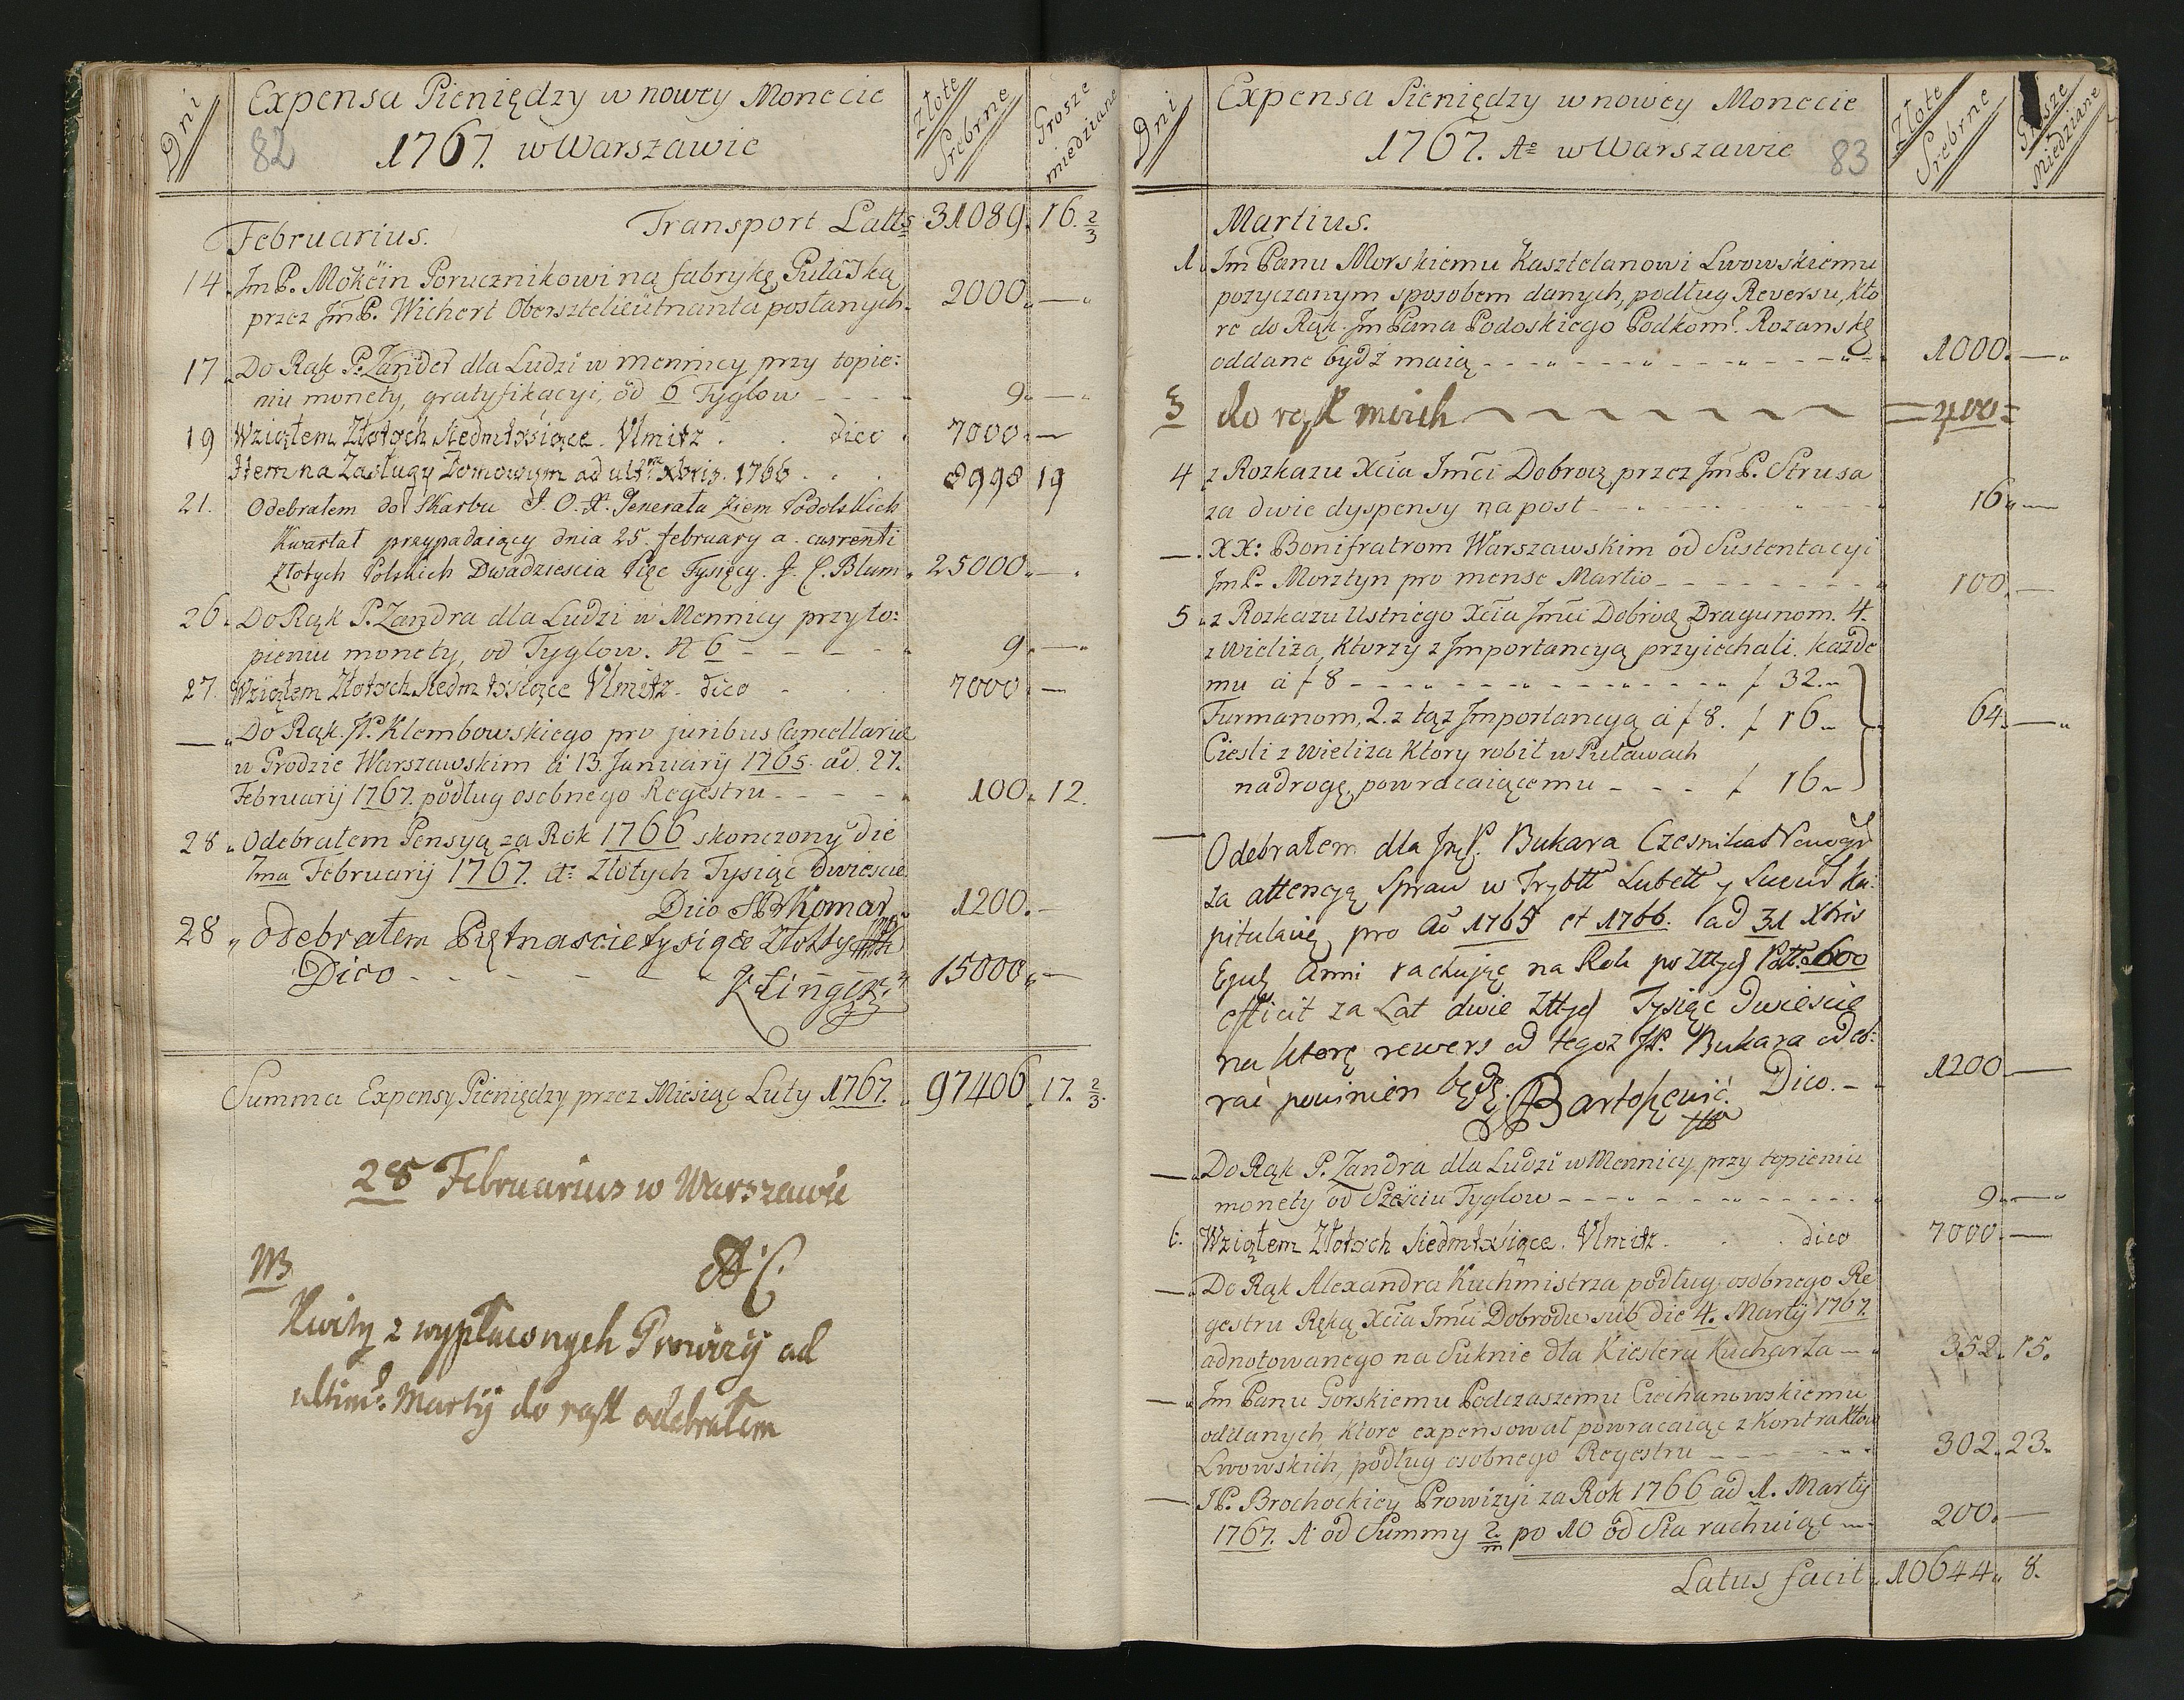 Dni
Expensa Pieniędzy w nowey Monecie
82 1767. w Warszawie
Złote Srebrne
Grosze miedziane
Februarius. Transport Latts 31089. 16. 2/3
14. Jm P. Mokcin Porucznikowi na fabrykę Puławską
przez Jm P. Wichert Obersztelieutnanta posłanych. 2000. —
17. Do Rąk P. Zander dla Ludzi w mennicy przy topie:
niu monety, gratyfikacyi, od 6 Tyglow - - - 9. —
19 Wziąłem Złotych Siedmtysiące. Ulmitz. . dico . 7000. —
Item na Zasługy Domowym ad ult: xbris. 1766 . . . 8998 19
21. Odebrałem do Skarbu J. O. X. Generała Ziem Podolskich
Kwartał przypadaiący dnia 25. february a. currenti
Złotych Polskich Dwadziescia Pięc Tysięcy. J. C. Blum. 25000. —
26. Do Rąk P. Zandra dla Ludzi w Mennicy przy to:
pieniu monety, od Tyglow. N 6 - - - - - 9. —
27. Wziąłem Złotych Siedm tysiące Ulmitz. dico - . . 7000. —
— Do Rąk JP. Klembowskiego pro juribus Cancellariae
w Grodzie Warszawskim a 13. Januarij 1765. ad. 27.
Februarij 1767. podług osobnego Regestru - - - - 100. 12.
28. Odebrałem Pensyą za Rok 1766 skonczony die
7ma Februarij 1767. a: Złotych Tysiąc Dwiescie
Dico Komar 1200. —
28 „ odebrałem Piętnascie tysiące Złotych
Dico - - - - - - Klinger 15000. —
Summa Expensy Pieniędzy przez Miesiąc Luty 1767. 97406. 17. 2/3.
28 Februarius w Warszawie
AC.
NB
Kwity z wypłaconych Prowizij ad
ultim: Martij do rąk odebrałem
Dni
Expensa Pieniędzy w nowey Monecie
1767. Ao w Warszawie 83
Złote Srebrne
Grosze Miedziane
Martius.
1. Jm Panu Morskiemu Kasztelanowi Lwowskiemu
pozyczanym sposobem danych, podług Reversu, kto
re do Rąk Jm Pana Podoskiego Podkom: Rozanskę
oddane bydź maią - - - - - - - - 1000. —
3 do rąk moich = 400 =
4 z Rozkazu Xcia Jmci Dobrodz przez Jm P. Strusa
za dwie dyspensy na post - - - - - - 16. —
— . XX: Bonifratrom Warszawskim od Sustentacyi
Jm P. Morsztyn pro mense Martio - - - - - 100. —
5. z Rozkazu Ustnego Xcia Jmci Dobrodz Dragunom. 4.
z Wieliza, ktorzy z Importancyą przyiechali. każde
mu a f 8 - - - - - - - - f 32.
Furmanom, 2. z tąż Importancyą a f 8. f 16. 64. —
Ciesli z Wieliza ktory robił w Puławach
na drogę, powracaiącemu - - - f 16.
— Odebrałem dla Jmć P. Bukara Czesnika Nowogr
za attencyą Spraw w Trybtt Lubelt y Sucus Ka:
pitulacię pro Ao 1765 et 1766. ad 31 Xbris
Ejus Anni rachując na Rok po Zttych Poltt. 600
efficit za Lat dwie Zttych Tysiąc Dwiescie
na ktorę rewers od tegoz JP. Bukara odeb:
rać powinien będę. Bartoszewicz. Dico. - - 1200. —
— Do Rąk P. Zandra dla Ludzi w Mennicy, przy topieniu
monety od Szesciu Tyglow - - - - - - 9. —
6. Wziąłem Złotych Siedmtysiące. Ulmitz. . . dico 7000. —
— Do Rąk Alexandra Kuchmistrza podług osobnego Re
gestru Ręką Xcia Jmci Dobrodz sub die 4. Martij 1767.
adnotowanego na Suknie dla Kiestera Kucharza - 352. 15.
— Jm Panu Gorskiemu Podczaszemu Ciechanowskiemu
oddanych ktore expensował powracaiąc z Kontraktow
Lwowskich, podług osobnego Regestru - - - - - 302. 23.
— JP. Brochockiey Prowizyi za Rok 1766 ad 1. Martij
1767. A: od Summy 2/m po 10 od Sta rachuiąc - 200. —
Latus facit. 10644. 8.